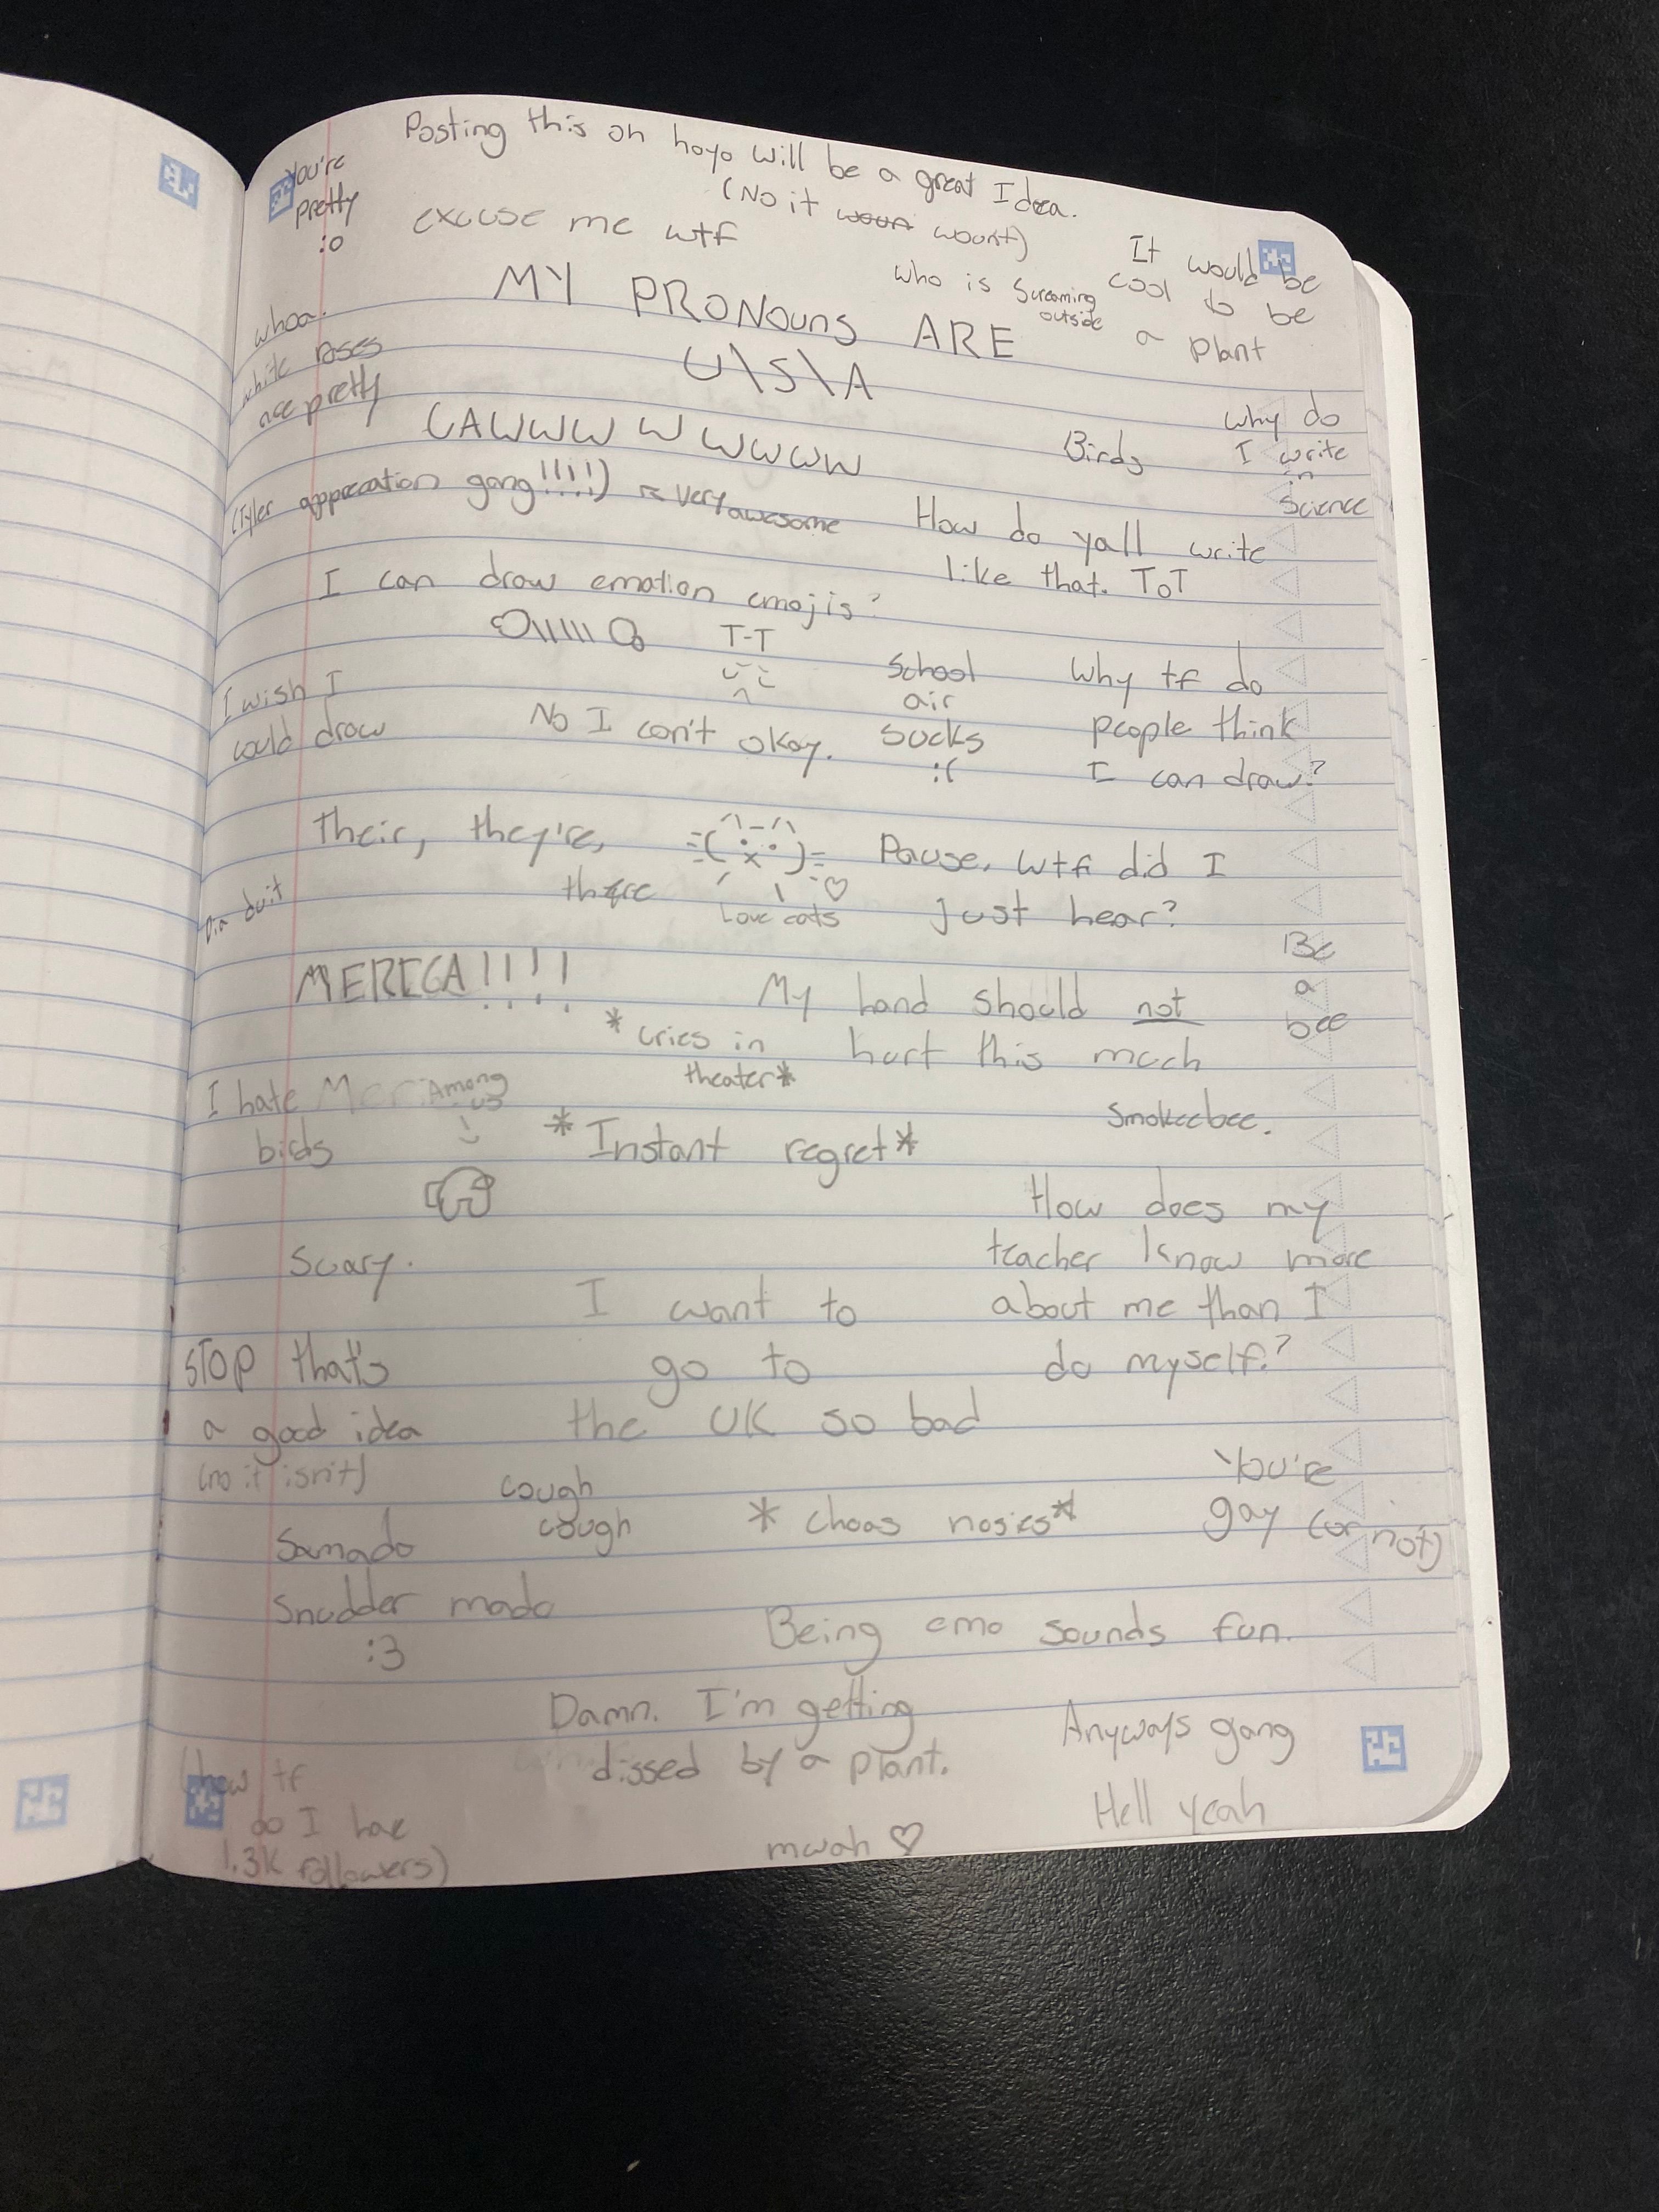 Posting this on hoyo will be a great Idea.
(No it wount)
You're
pretty
:o
excuse me wtf
It would be
cool to be
a plant
who is screaming
outside
MY PRONOUNS ARE
U\S\A
whoa.
white roses
are pretty
(AWWWWWWWW
Birds
why do
I write
in
science
(Tyler apprecation gang!!!!) very awesome
How do yall write
like that. ToT
I can draw emotion emojis?
T-T
I wish I
could draw
No I can't okay.
School
air
sucks
:(
Why tf do
people think
I can draw?
Their, they're,
there
Love cats
Pause, wtf did I
just hear?
Dia duit
MERICA!!!!
My hand should not
hurt this much
Be
a
bee
*cries in
theater*
I hate
birds
Mer
Among
us
*Instant regret*
Smokeebee.
How does my
teacher know more
about me than I
do myself?
Scary.
I want to
go to
the UK so bad
STOP that's
a good idea
(no it isn't)
cough
cough
*choas nosies*
You're
gay (or not)
Samado
Snudder mado
:3
Being emo sounds fun.
Damn. I'm getting
dissed by a plant.
Anyways gang
Hell yeah
(how tf
do I have
1.3K followers)
mwah ♡